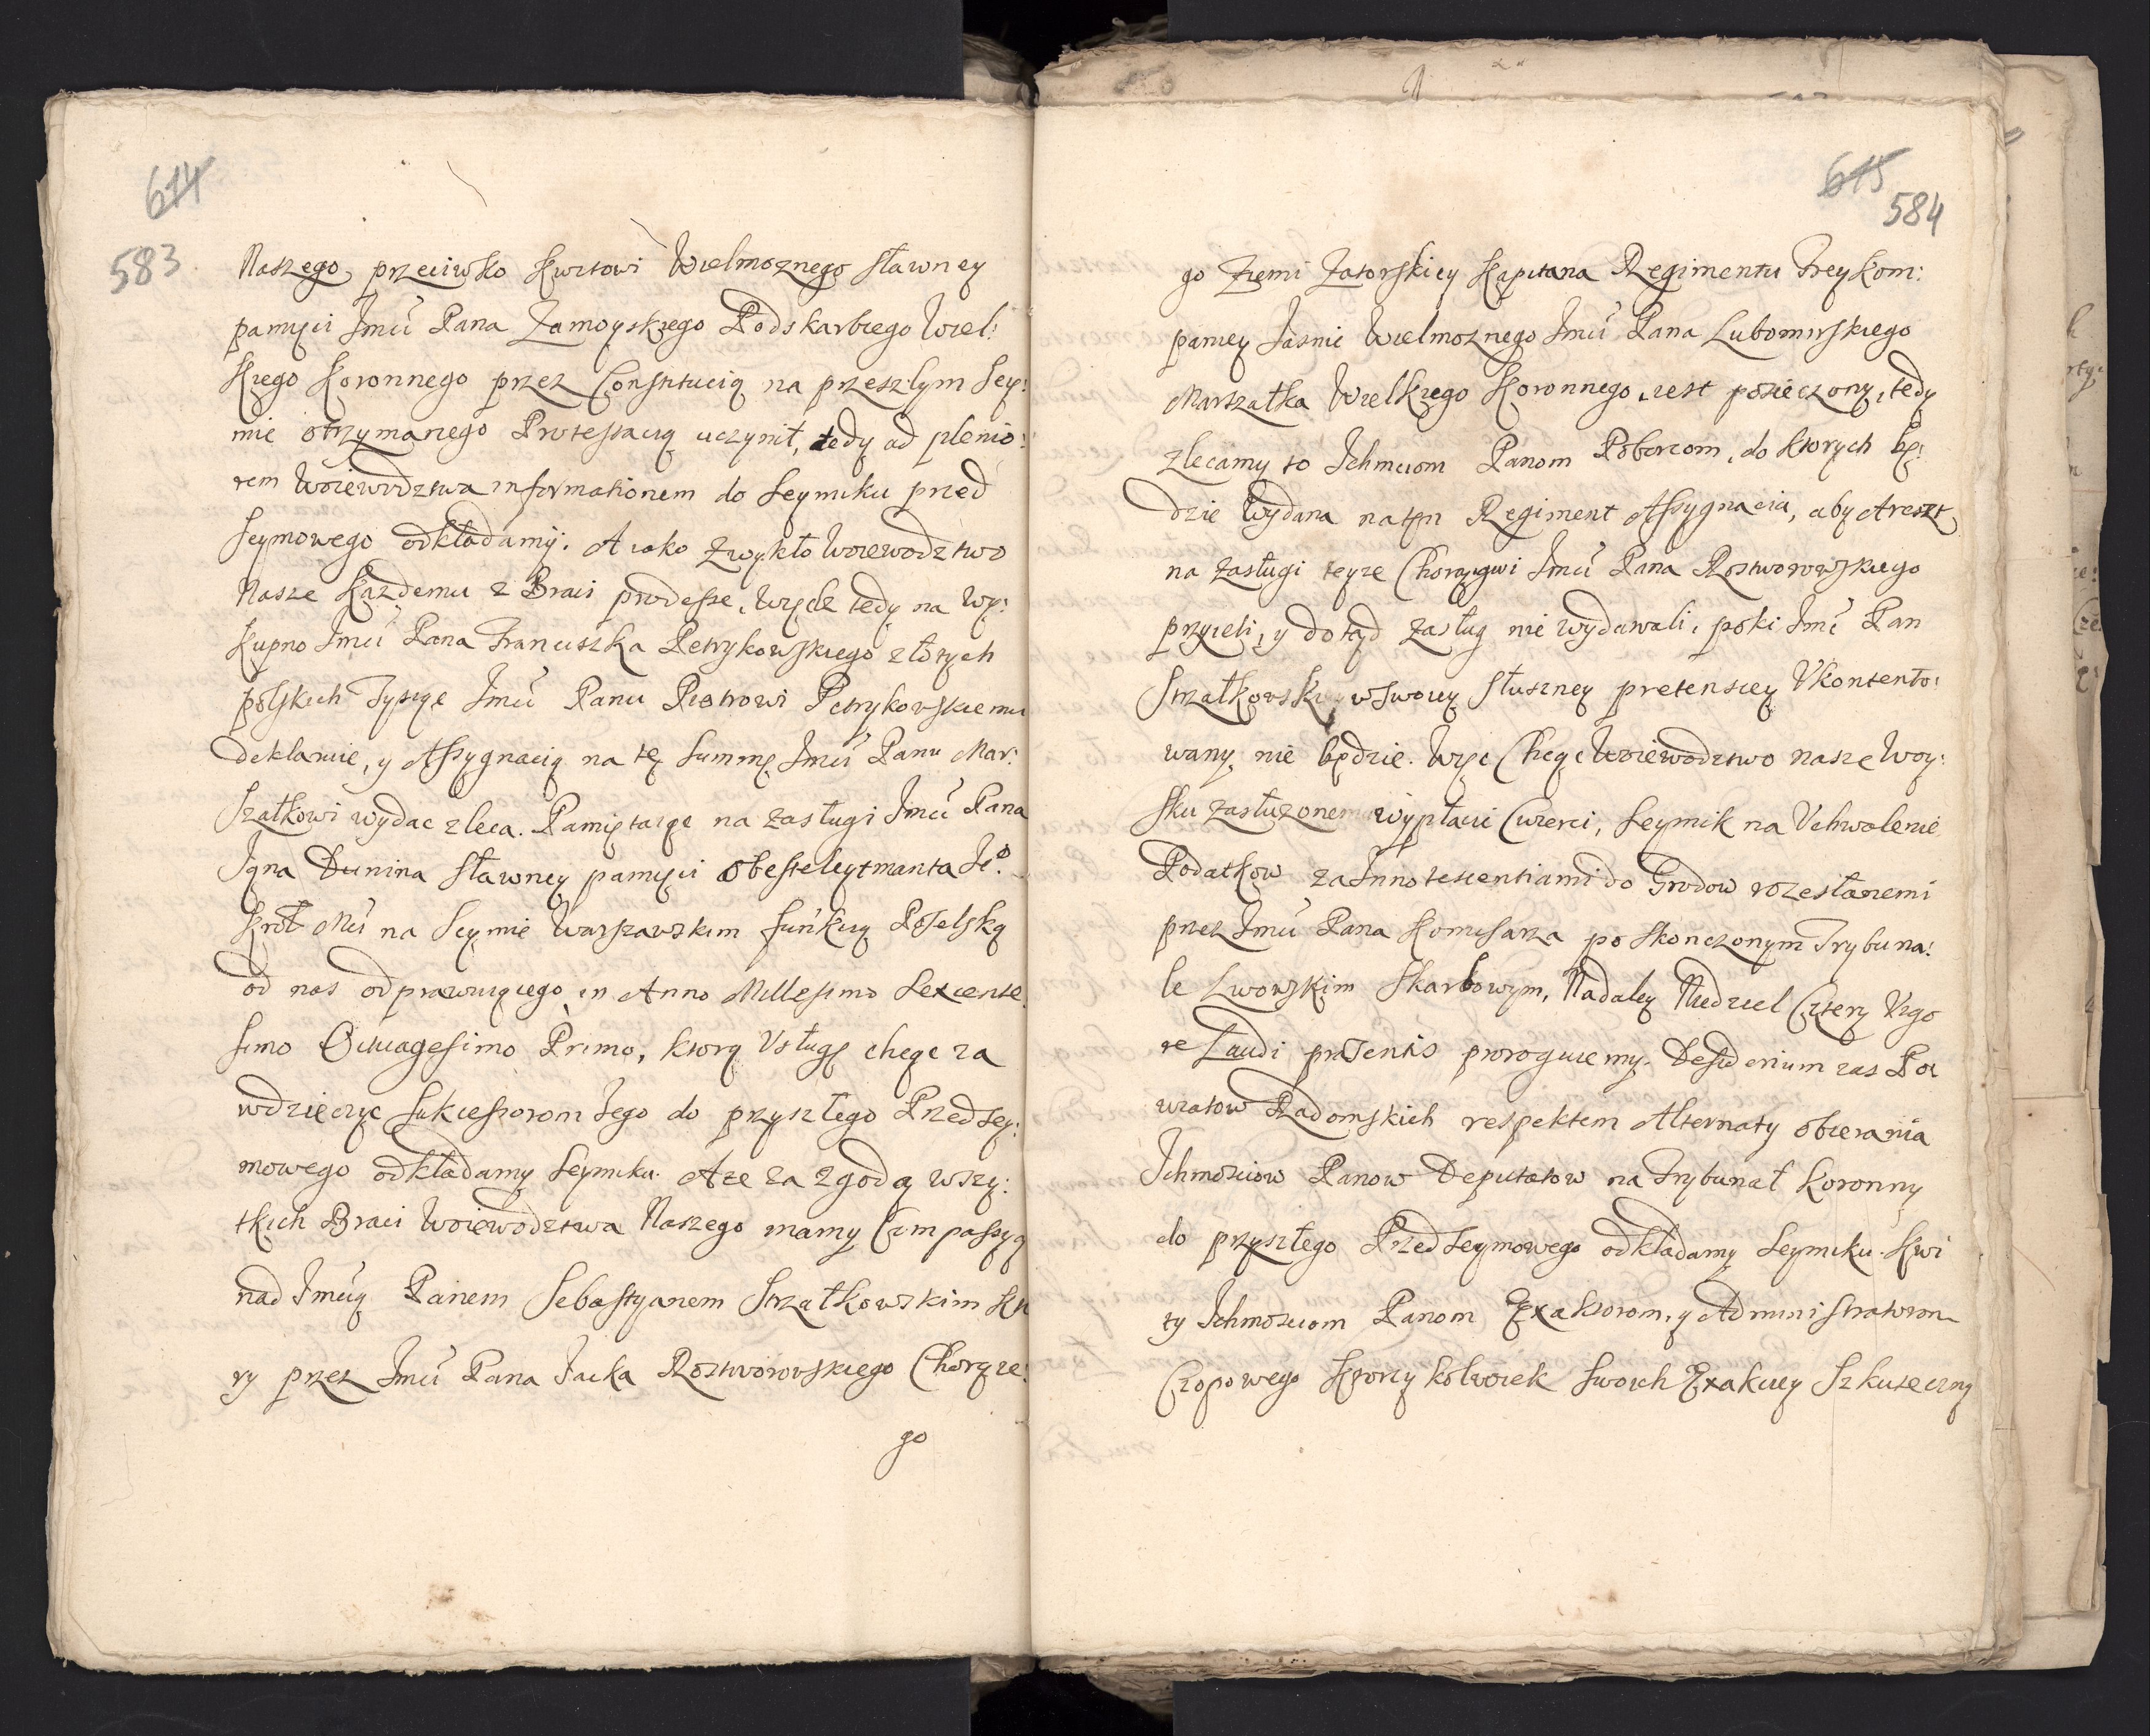 614
583
Naszego, przeciwko Kwitowi Wielmoznego sławney
pamięci Jmći Pana Zamoyskiego Podskarbiego Wiel:
kiego Koronnego przez Constitucią na przeszłym Sey:
mie otrzymanego Protestacią uczynił, tedy ad plenio:
rem Woiewodztwa informationem do Seymiku przed
Seymowego odkładamy. A iako zwykło Woiewodztwo
Nasze kazdemu z Braci prodesse, więc tedy na wy:
kupno Jmći Pana Franciszka Petrykowskiego złotych
polskich Tysiąc Jmći Panu Piotrowi Petrykowskiemu
deklaruie, y Assygnacią na tę Summę Jmći Panu Mar:
szałkowi wydac zleca. Pamiętaiąc na zasługi Jmći Pana
Jana Dunina sławney pamięci Obesteleytmanta Jeo.
Krol Mći na Seymie Warszawskim funkcią Poselską
od nas odprawuiącego in Anno Millesimo Sexcente
simo Octuagesimo Primo, ktorą Usługę chcąc za
wdzięczyc Sukcessorom Jego do przyszłego Przedsey:
mowego odkładamy Seymiku. A ze za zgodą wszy:
tkich Braci Woiewodztwa Naszego mamy Compassyą
nad Jmćią Panem Sebastyanem Strzałkowskim kto
ry przez Jmći Pana Jacka Rostworowskiego Chorąże:
go
615
584
go Ziemi Zatorskiey Kapitana Regimentu Frey kom:
paniey Jasnie Wielmoznego Jmći Pana Lubomirskiego
Marszałka Wielkiego Koronnego, iest posieczony, tedy
zlecamy to Ichmciom Panom Poborcom, do ktorych bę:
dzie Wydana na ten Regiment Assygnacia, aby Areszt
na zasługi teyze Chorągwi Jmći Pana Rostworowskiego
przyieli, y dotąd zasług nie wydawali, poki Jmć Pan
Strzałkowski w swoiey słuszney pretensiey Ukontento:
wany nie będzie. Więc Chcąc Woiewodztwo nasze Woy:
sku zasłuzonemu wypłacic Cwierci, Seymik na Uchwalenie
Podatkow za Innotescentiami do Grodow rozesłanemi
przez Jmći Pana Komisarza po skonczonym Trybuna:
le Lwowskim Skarbowym, Nadaley Niedziel Cztery Vigo
re Laudi praesentis proroguiemy. Desiderium zas Po
wiatow Radomskich respektem Alternaty obierania
Ichmosciow Panow Deputatow na Trybunał Koronny
do przyszłego Przedseymowego odkładamy Seymiku. Kwi
ty Ichmosciom Panom Exaktorom, y Administratorom
Czopowego ktorzy kolwiek swoich Exakciey Szkuteczny